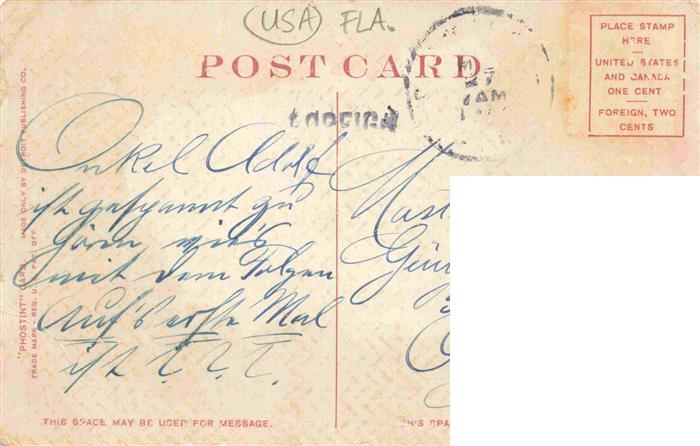 (USA) FLA.
POST CARD
PLACE STAMP
HERE
UNITED STATES
AND CANADA
ONE CENT
FOREIGN, TWO
CENTS
27
AM
"PHOSTINT" CARD. MADE ONLY BY DETROIT PUBLISHING CO.
TRADE MARK - REG. U.S. PAT. OFF.
Onkel Adolf
ist gespannt zu
hören, wie's
mit dem Folgen
auf's erste Mal
ist ? ? ?
THIS SPACE MAY BE USED FOR MESSAGE.